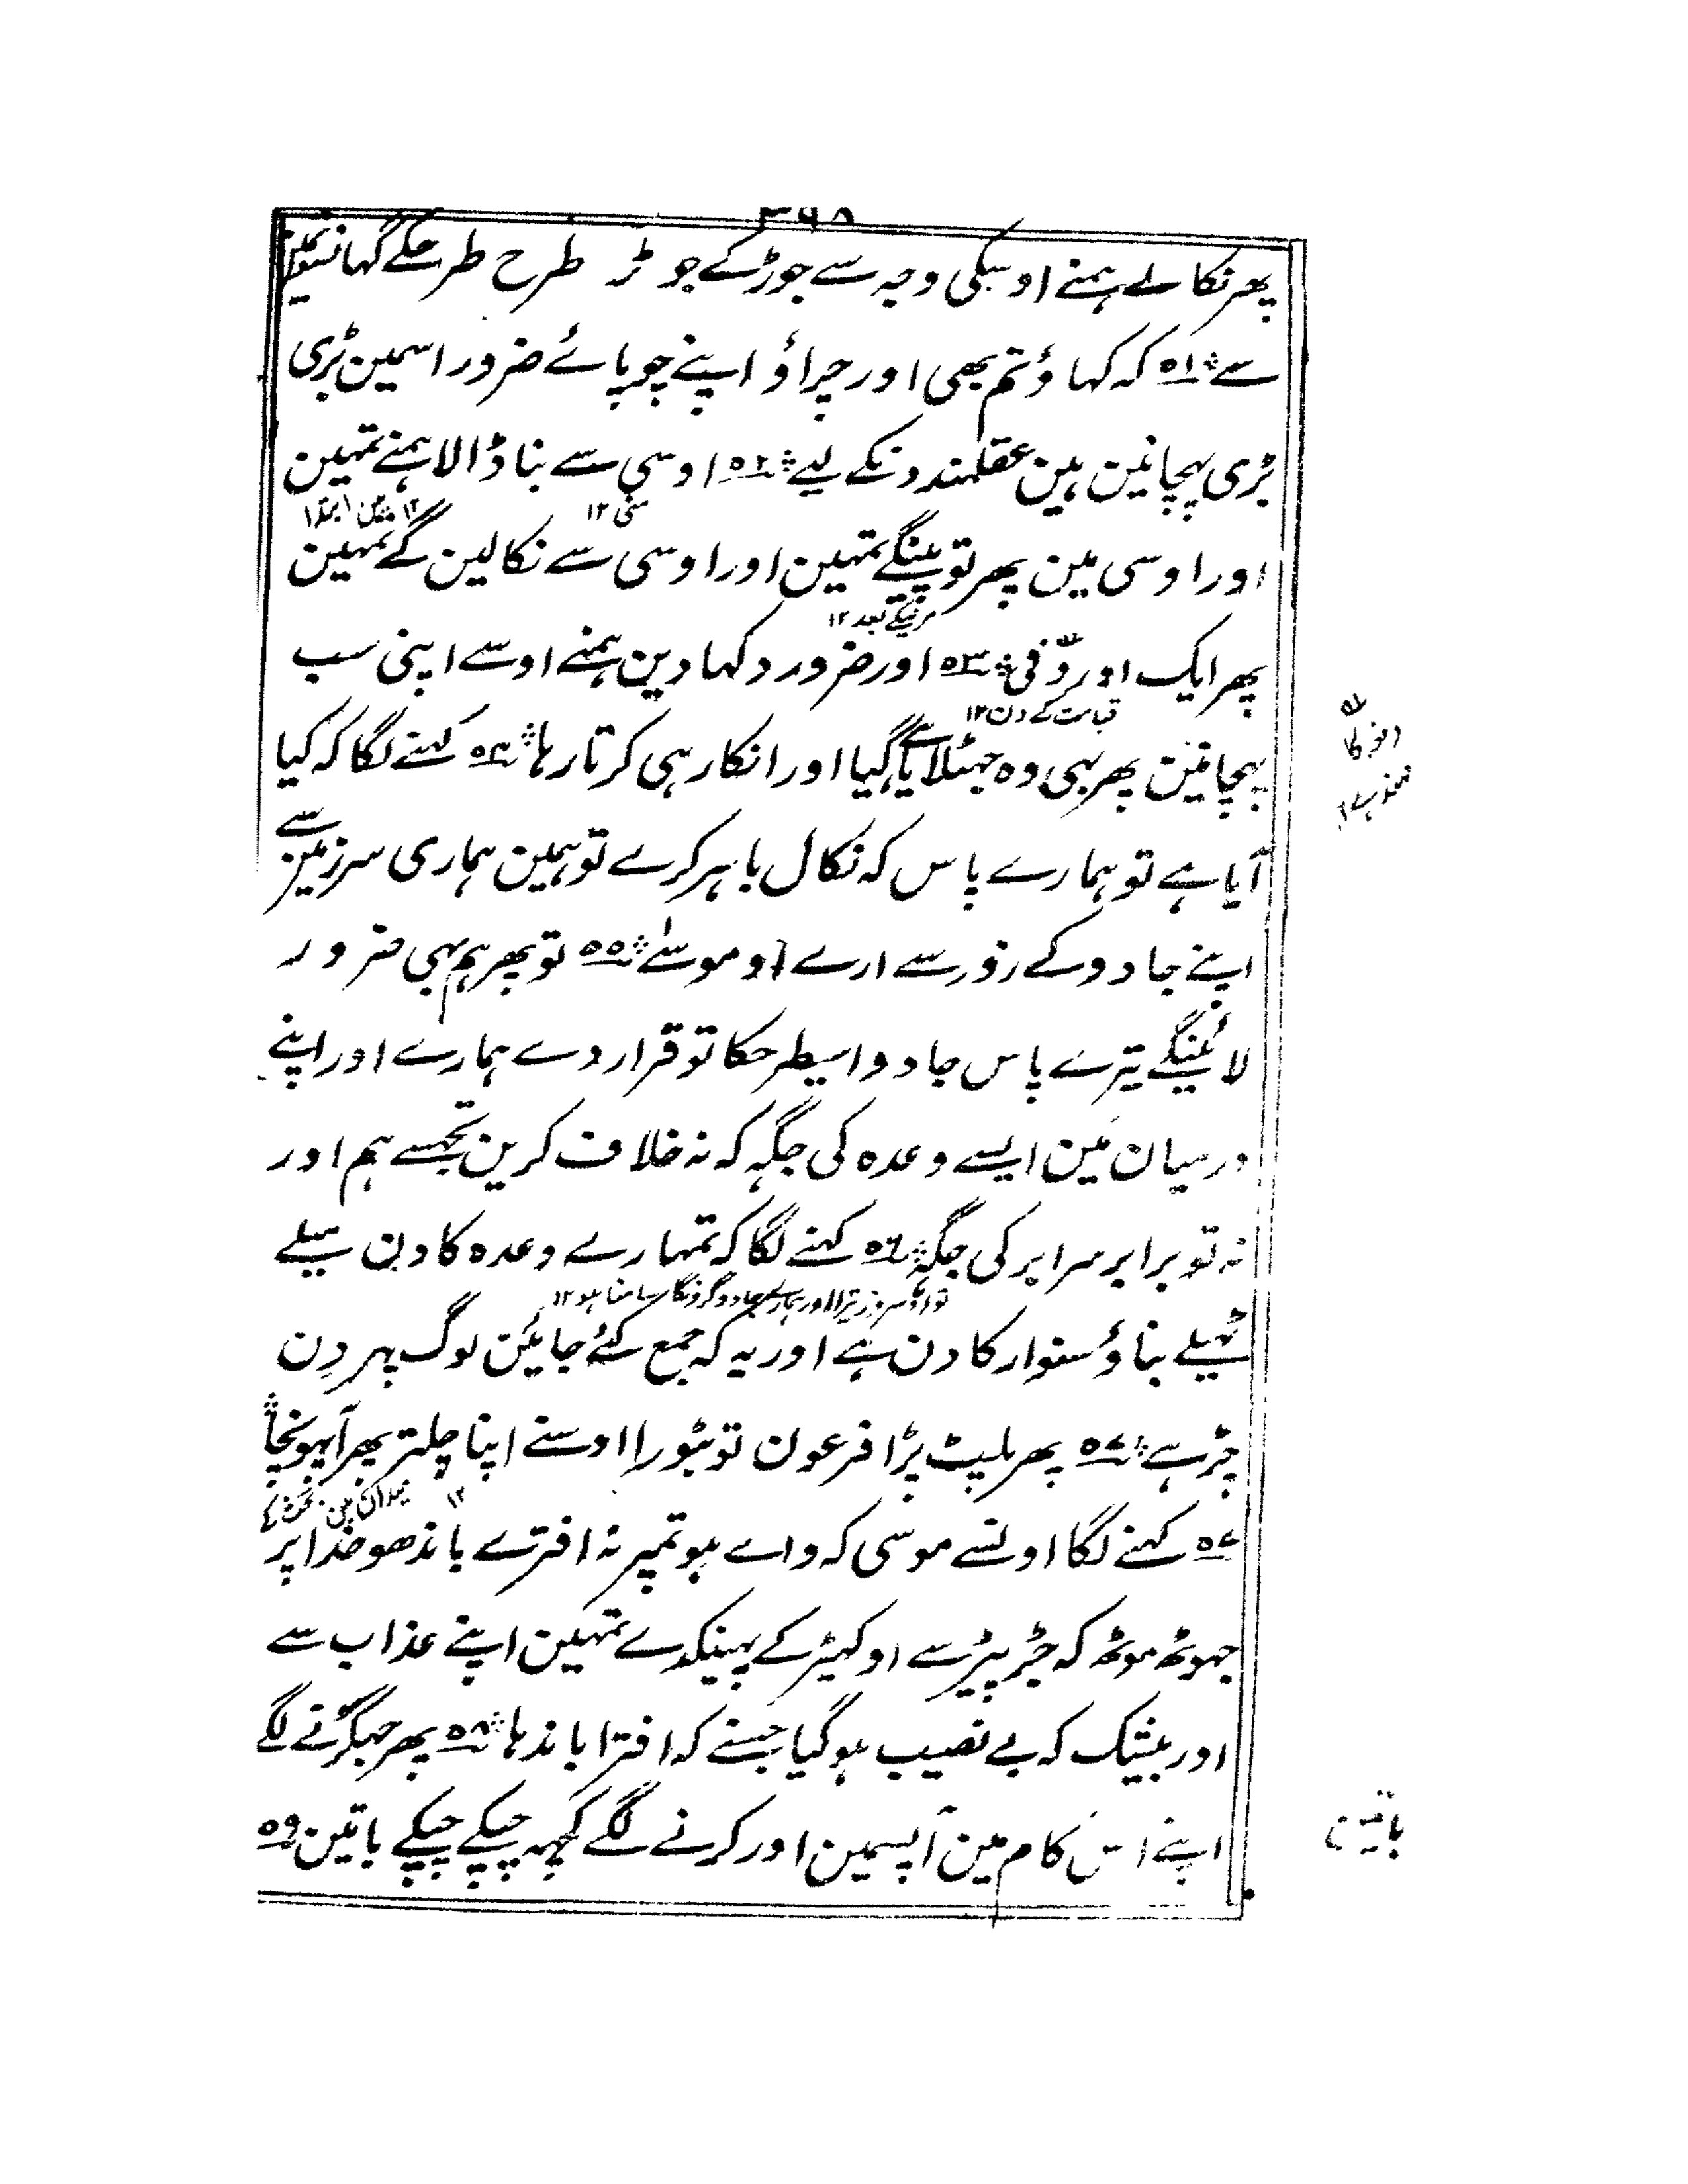 پھر نکالے ہمنے اوسکی وجہ سے جوڑ کے جوڑ طرح طرحکے گہانسونمین
سے ؞ ۵۱ کہ کہاؤ تم بھی اور چراؤ اپنے چوپائے ضرور اسمین بڑی
بڑی پہچانین ہین عقلمندونکے لیے ؞ ۵۲ اوسی سے بنا ڈالا ہمنے تمہین
مٹی ۱۲
اور اوسی مین پھر توپینگے تمہین اور اوسی سے نکالین گے تمہین
مرنیکے بعد ۱۲
پھر ایک اور دفی ؞ ۵۳ اور ضرور دکہا دین ہمنے اوسے اپنی سب
قیامت کے دن ۱۲
پہچانین پھر بہی وہ جہٹلائے ہی گیا اور انکار ہی کرتا رہا ؞ ۵۴ کہنے لگا کہ کیا
آیا ہے تو ہمارے پاس کہ نکال باہر کرے تو ہمین ہماری سرزمین سے
اپنے جادو کے زور سے ارے او موسےٰ ؞ ۵۵ تو پھر ہم بہی ضرور
لائینگے تیرے پاس جادو اسیطرحکا تو قرار دے ہمارے اور اپنے
درمیان مین ایسے وعدہ کی جگہ کہ نہ خلاف کرین تجہسے ہم اور
نہ تو برابر سرابر کی جگہ ؞ ۵۶ کہنے لگا کہ تمہارے وعدہ کا دن میلے
تو اوسروز تیرا اور ہمارے جادوگرونکا سامنا ہو ۱۲
ٹہیلے بناؤ سنوار کا دن ہے اور یہ کہ جمع کئے جائین لوگ پہر دن
چڑہے ؞ ۵۷ پھر پلیٹ پڑا فرعون تو بٹورا اوسنے اپنا چلتر پھر آپہونچا ؞
۱۲
۵۷ کہنے لگا اونسے موسی کہ واے ہو تمپر نہ افترے باندھو خدا پر
جہوٹھ موٹھ کہ جڑ پیڑ سے اوکہیڑ کے پہینکدے تمہین اپنے عذاب سے
اور بیشک کہ بے نصیب ہوگیا جسنے کہ افترا باندہا ؞ ۵۸ پھر جہگڑنے لگے
اپنے اس کام مین آپسمین اور کرنے لگے کچہہ چپکے چپکے باتین ۵۹
باتین